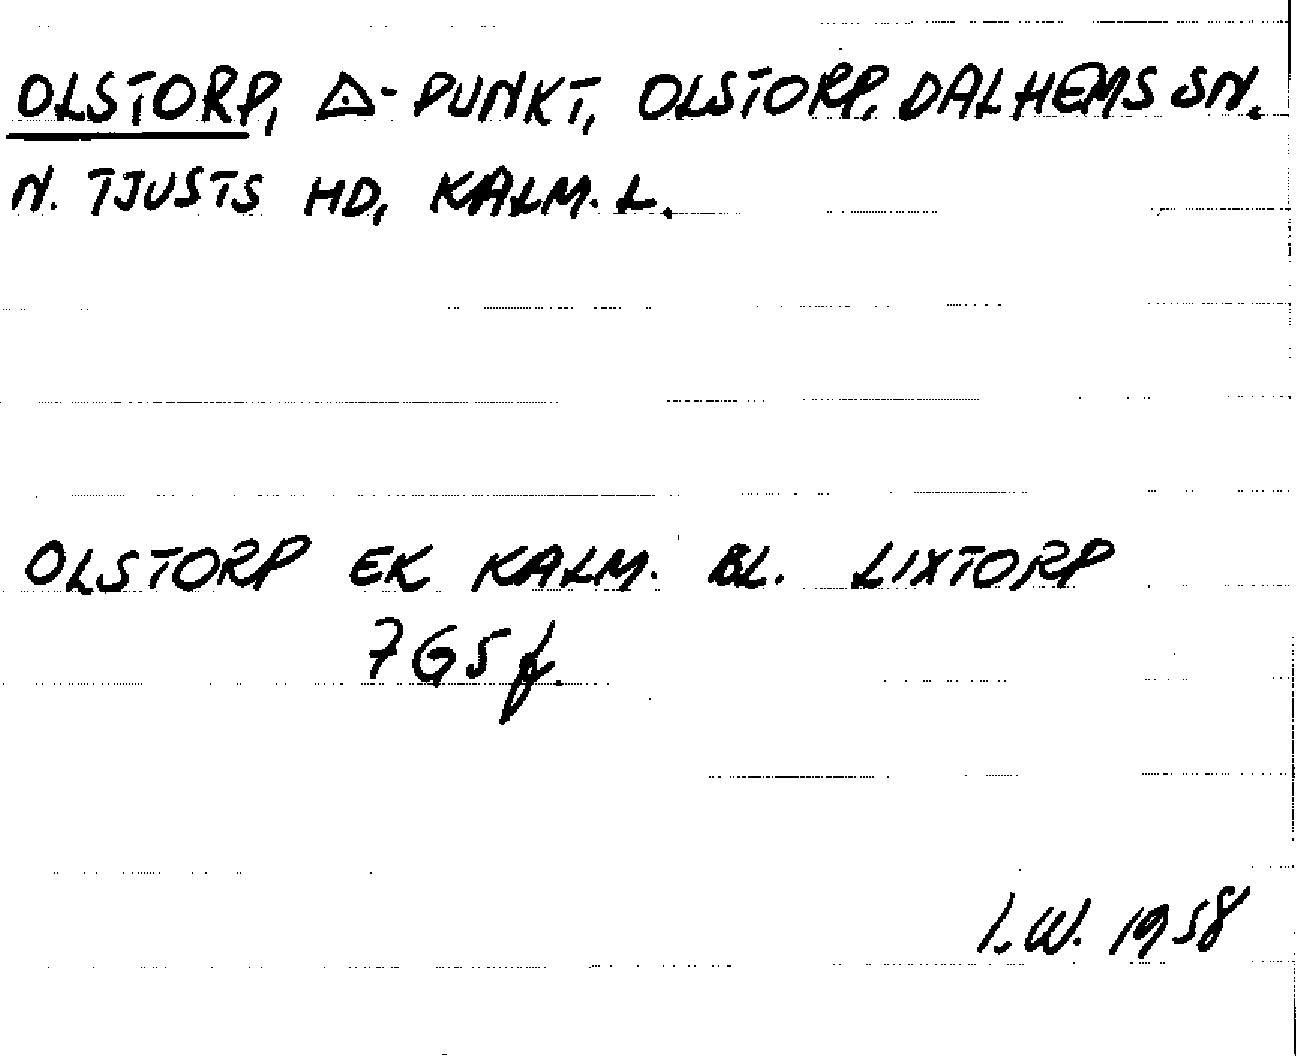 OLSTORP, △-PUNKT, OLSTORP, DALHEMS SN.
N. TJUSTS HD, KALM. L.
OLSTORP EK KALM. BL. LIXTORP
7G5f.
I.W. 1958